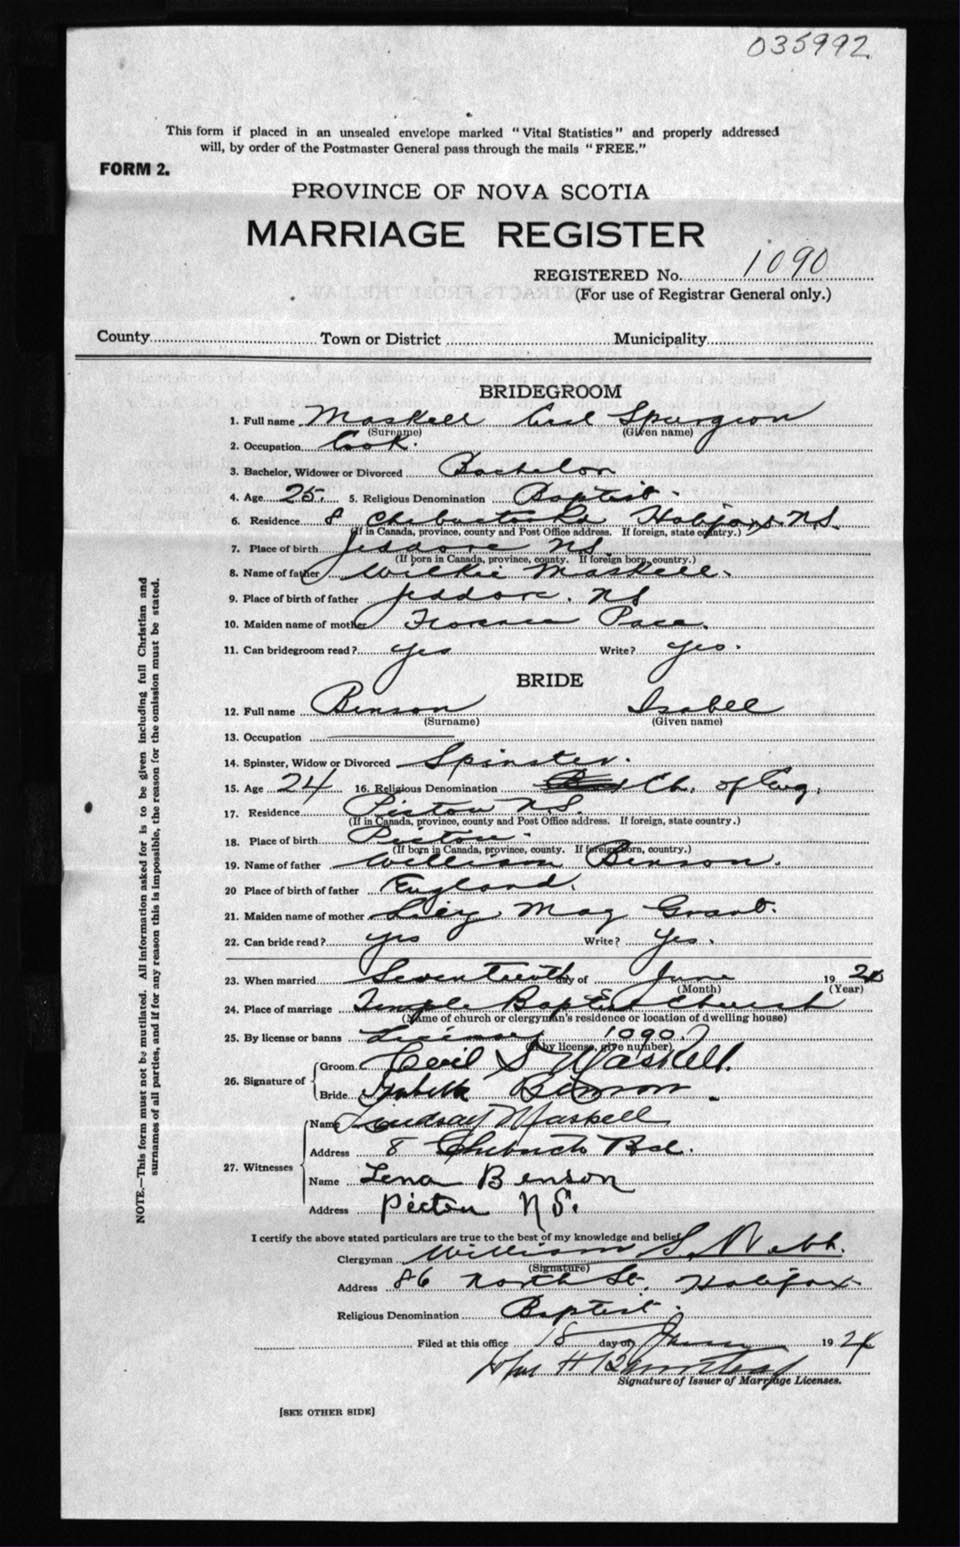 035992
This form if placed in an unsealed envelope marked "Vital Statistics" and properly addressed
will, by order of the Postmaster General pass through the mails "FREE."
FORM 2.
PROVINCE OF NOVA SCOTIA
MARRIAGE REGISTER
REGISTERED No. 1090
(For use of Registrar General only.)
County Town or District Municipality
BRIDEGROOM
1. Full name Maskell Cecil Spurgeon
(Surname) (Given name)
2. Occupation Cook.
3. Bachelor, Widower or Divorced Bachelor
4. Age 25. 5. Religious Denomination Baptist.
6. Residence 8 Chebucto Rd Halifax, N.S.
(If in Canada, province, county and Post Office address. If foreign, state country.)
7. Place of birth Jeddore N.S.
(If born in Canada, province, county. If foreign born, country.)
8. Name of father Wilkie Maskell.
9. Place of birth of father Jeddore. NS
10. Maiden name of mother Florence Pace.
11. Can bridegroom read? yes Write? yes.
BRIDE
12. Full name Benson Isabel
(Surname) (Given name)
13. Occupation
14. Spinster, Widow or Divorced Spinster.
15. Age 24 16. Religious Denomination Ch. of Eng.
17. Residence Pictou N.S.
(If in Canada, province, county and Post Office address. If foreign, state country.)
18. Place of birth Pictou.
(If born in Canada, province, county. If foreign born, country.)
19. Name of father William Benson.
20 Place of birth of father England.
21. Maiden name of mother Lucy May Grant.
22. Can bride read? yes Write? yes.
23. When married Seventeenth day of June 1924
(Month) (Year)
24. Place of marriage Temple Baptist Church
(Name of church or clergyman's residence or location of dwelling house)
25. By license or banns License 1090
(If by license, give number)
26. Signature of Groom Cecil S Maskell.
Bride Isabell Benson.
27. Witnesses Name Lindsay Maskell
Address 8 Chebucto Rd.
Name Lena Benson
Address Pictou N.S.
I certify the above stated particulars are true to the best of my knowledge and belief.
Clergyman William S. Webb.
(Signature)
Address 86 North St. Halifax
Religious Denomination Baptist.
Filed at this office 18 day of June 1924
Signature of Issuer of Marriage Licenses.
[SEE OTHER SIDE]
NOTE.—This form must not be mutilated. All information asked for is to be given including full Christian and
surnames of all parties, and if for any reason this is impossible, the reason for the omission must be stated.